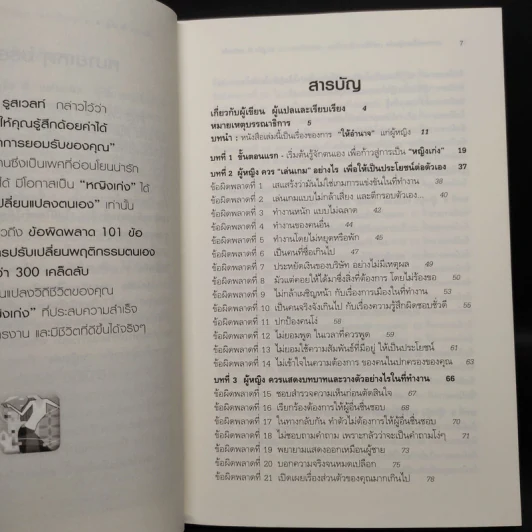 รูสเวลท์ กล่าวไว้ว่า
ให้คุณรู้สึกด้อยค่าได้
าการยอมรับของคุณ"
านซึ่งเป็นเพศที่อ่อนโยนน่ารัก
ได้ มีโอกาสเป็น "หญิงเก่ง" ได้
ปลี่ยนแปลงตนเอง" เท่านั้น
วถึง ข้อผิดพลาด 101 ข้อ
ารปรับเปลี่ยนพฤติกรรมตนเอง
ว่า 300 เคล็ดลับ
นแปลงวิถีชีวิตของคุณ
ญิงเก่ง" ที่ประสบความสำเร็จ
ารงาน และมีชีวิตที่ดีขึ้นได้จริงๆ
7
สารบัญ
เกี่ยวกับผู้เขียน ผู้แปลและเรียบเรียง 4
หมายเหตุบรรณาธิการ 5
บทนำ : หนังสือเล่มนี้เป็นเรื่องของการ "ให้อำนาจ" แก่ผู้หญิง 11
บทที่ 1 ขั้นตอนแรก - เริ่มต้นรู้จักตนเอง เพื่อก้าวสู่การเป็น "หญิงเก่ง" 19
บทที่ 2 ผู้หญิง ควร "เล่นเกม" อย่างไร เพื่อให้เป็นประโยชน์ต่อตัวเอง 37
ข้อผิดพลาดที่ 1 เสแสร้งว่ามันไม่ใช่เกมการแข่งขันในที่ทำงาน 38
ข้อผิดพลาดที่ 2 เล่นเกมแบบไม่กล้าเสี่ยง และตีกรอบตัวเอง... 40
ข้อผิดพลาดที่ 3 ทำงานหนัก แบบไม่ฉลาด 42
ข้อผิดพลาดที่ 4 ทำงานของคนอื่น 43
ข้อผิดพลาดที่ 5 ทำงานโดยไม่หยุดหรือพัก 45
ข้อผิดพลาดที่ 6 เป็นคนที่ซื่อเกินไป 47
ข้อผิดพลาดที่ 7 ประหยัดเงินของบริษัท อย่างไม่มีเหตุผล 48
ข้อผิดพลาดที่ 8 มัวแต่คอยให้ได้มาซึ่งสิ่งที่ต้องการ โดยไม่ร้องขอ 50
ข้อผิดพลาดที่ 9 ไม่กล้าเผชิญหน้า กับเรื่องการเมืองในที่ทำงาน 53
ข้อผิดพลาดที่ 10 เป็นคนจริงจังเกินไป กับเรื่องความรู้สึกผิดชอบชั่วดี 55
ข้อผิดพลาดที่ 11 ปกป้องคนโง่ 58
ข้อผิดพลาดที่ 12 ไม่ยอมพูด ในเวลาที่ควรพูด 59
ข้อผิดพลาดที่ 13 ไม่ยอมใช้ความสัมพันธ์ที่มีอยู่ ให้เป็นประโยชน์ 61
ข้อผิดพลาดที่ 14 ไม่เข้าใจในความต้องการ ของคนในปกครองของคุณ 63
บทที่ 3 ผู้หญิง ควรแสดงบทบาทและวางตัวอย่างไรในที่ทำงาน 66
ข้อผิดพลาดที่ 15 ชอบสำรวจความเห็นก่อนตัดสินใจ 67
ข้อผิดพลาดที่ 16 เรียกร้องต้องการให้ผู้อื่นชื่นชอบ 68
ข้อผิดพลาดที่ 17 ในทางกลับกัน ทำตัวไม่ต้องการให้ผู้อื่นชื่นชอบ 70
ข้อผิดพลาดที่ 18 ไม่ชอบถามคำถาม เพราะกลัวว่าจะเป็นคำถามโง่ๆ 71
ข้อผิดพลาดที่ 19 พยายามแสดงออกเหมือนผู้ชาย 73
ข้อผิดพลาดที่ 20 บอกความจริงจนหมดเปลือก 75
ข้อผิดพลาดที่ 21 เปิดเผยเรื่องส่วนตัวของคุณมากเกินไป 78